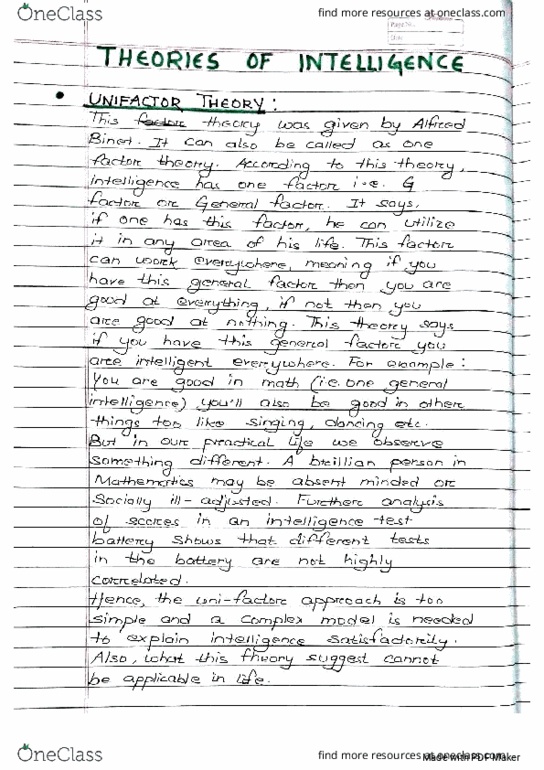 OneClass
find more resources at oneclass.com
Page No.
Date
THEORIES OF INTELLIGENCE
• UNIFACTOR THEORY :
This factor theory was given by Alfred
Binet. It can also be called as one
factor theory. According to this theory,
intelligence has one factor i.e. G
factor or General factor. It says,
if one has this factor, he can utilize
it in any area of his life. This factor
can work everywhere, meaning if you
have this general factor then you are
good at everything, if not then you
are good at nothing. This theory says
if you have this general factor you
are intelligent everywhere. For example:
You are good in math (i.e. one general
intelligence) you'll also be good in other
things too like singing, dancing etc.
But in our practical life we observe
something different. A brillian person in
Mathematics may be absent minded or
Socially ill-adjusted. Further analysis
of scores in an intelligence test
battery shows that different tests
in the battery are not highly
correlated.
Hence, the uni-factor approach is too
simple and a complex model is needed
to explain intelligence satisfactorily.
Also, what this theory suggest cannot
be applicable in life.
OneClass
find more resources at oneclass.com
Made with PDF Maker